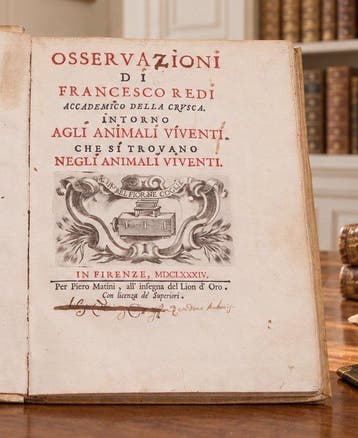 OSSERVAZIONI
DI
FRANCESCO REDI
ACCADEMICO DELLA CRVSCA.
INTORNO
AGLI ANIMALI VIVENTI.
CHE SI TROVANO
NEGLI ANIMALI VIVENTI.
IN FIRENZE, MDCLXXXIV.
Per Piero Matini, all' insegna del Lion d' Oro.
Con licenza de' Superiori.